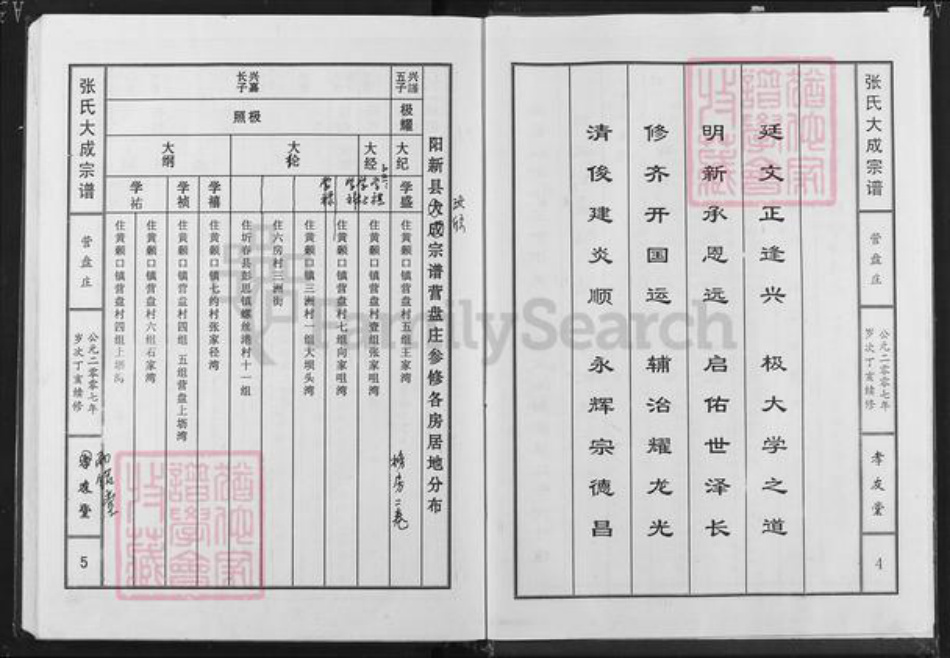 张氏大成宗谱
营盘庄
公元二零零七年
岁次丁亥续修
孝友堂
4
廷文正逢兴 极大学之道
明新承恩远 启佑世泽长
修齐开国运 辅治耀龙光
清俊建炎顺 永辉宗德昌
阳新县大成宗谱营盘庄参修各房居地分布
兴谣 五子
兴嘉 长子
极耀
极照
大纪
大经
大轮
大纲
学盛
学禧
学祯
学祐
住黄颡口镇营盘村五组王家湾
住黄颡口镇营盘村壹组张家咀湾
住黄颡口镇营盘村七组向家咀湾
住黄颡口镇三洲村一组大坝头湾
住六房村三洲街
住圻春县彭思镇螺丝港村十一组
住黄颡口镇七约村张家径湾
住黄颡口镇营盘村四组 五组营盘上塝湾
住黄颡口镇营盘村六组石家湾
住黄颡口镇营盘村四组上塝
张氏大成宗谱
营盘庄
公元二零零七年
岁次丁亥续修
孝友堂
5
FamilySearch